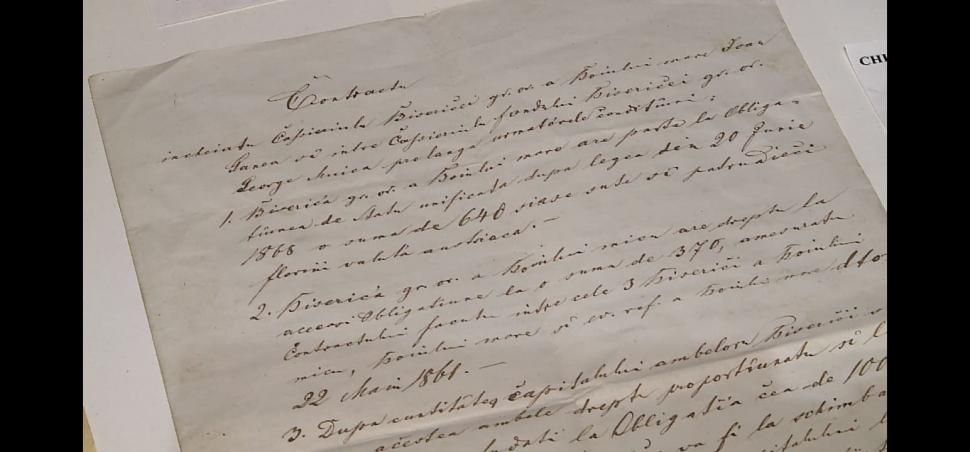 Contractu
incheiatu Casieriulu Bisericei gr. or. a Boiului mare Ioan
Ganea si intre Casieriulu fondului Bisericei gr. or.
George Muica prelanga urmatórele conditiuni:
1. Biserica gr. or. a Boiului mare are parte la Obliga-
tiunea de statu unificata dupa legea din 20 Juniu
1868 o suma de 640 siase sute si patrudieci
florini valuta austriaca.
2. Biserica gr. or. a Boiului micu are dreptu la
aceeasi Obligatiune la o suma de 370, amesuratu
Contractului facutu intre cele 3 Biserici a Boiului
micu, Boiului mare si ev. ref. a Boiului mare dto
22 Maiu 1861.
3. Dupa cantitatea Capitalului ambeloru Biserici
acestea ambele dreptu proportiunatu si
la Obligatia cea de 100
va fi la schimba
CHI